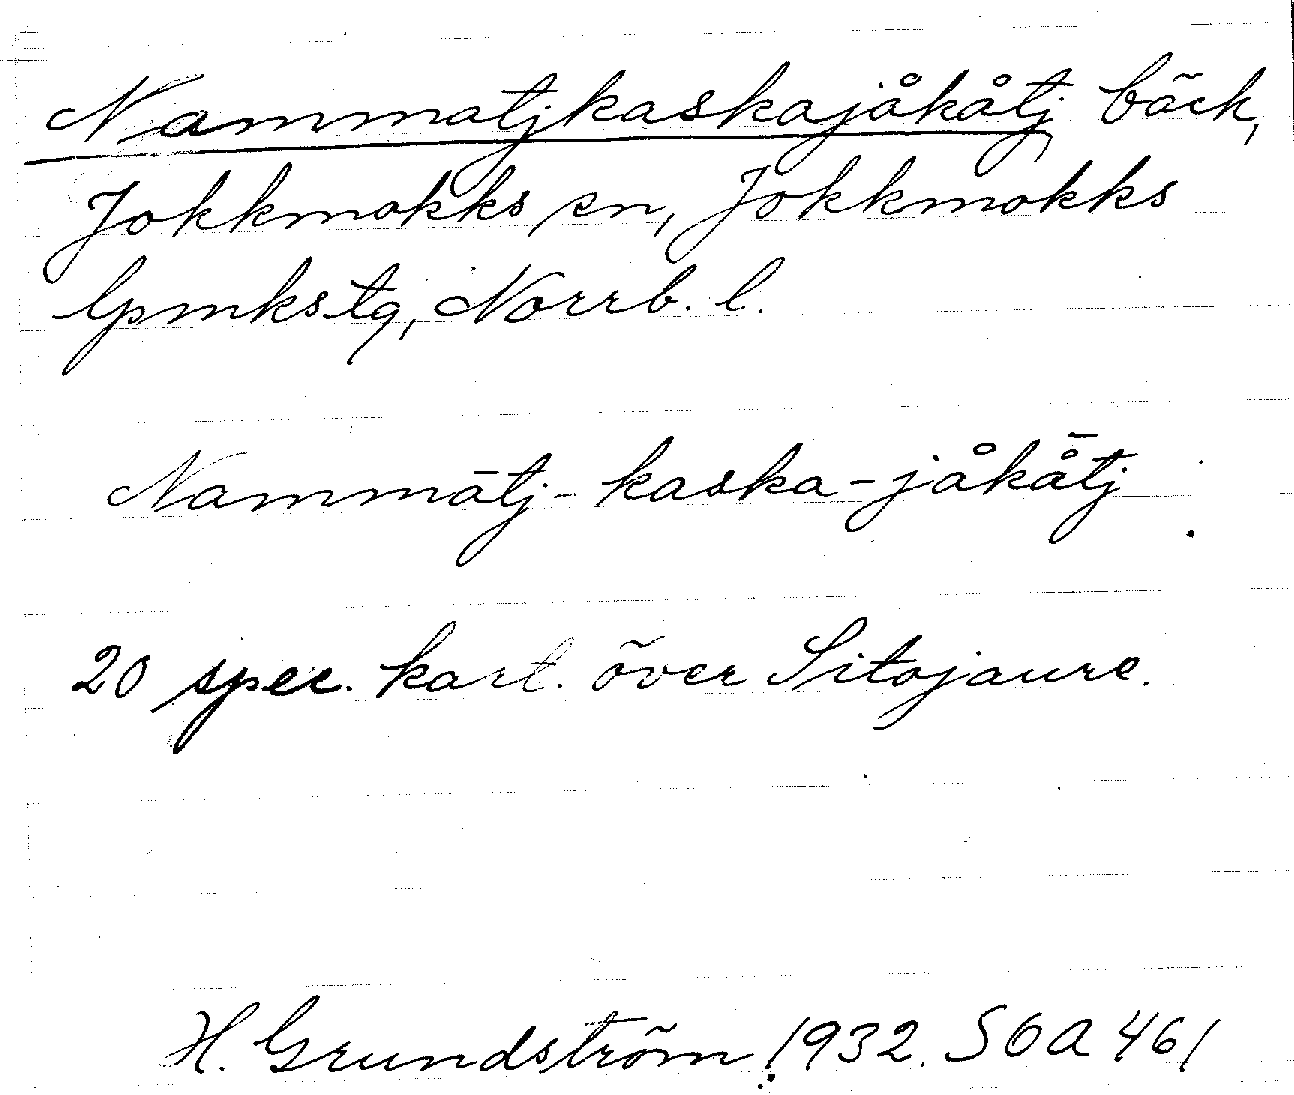 Nammatjkaskajåkåtj bäck,
Jokkmokks sn, Jokkmokks
lpmkstg, Norrb. l.
Nammātj-kaska-jåkå̄tj
20 spec. kart. över Sitojaure.
H. Grundström 1932. SOA 461